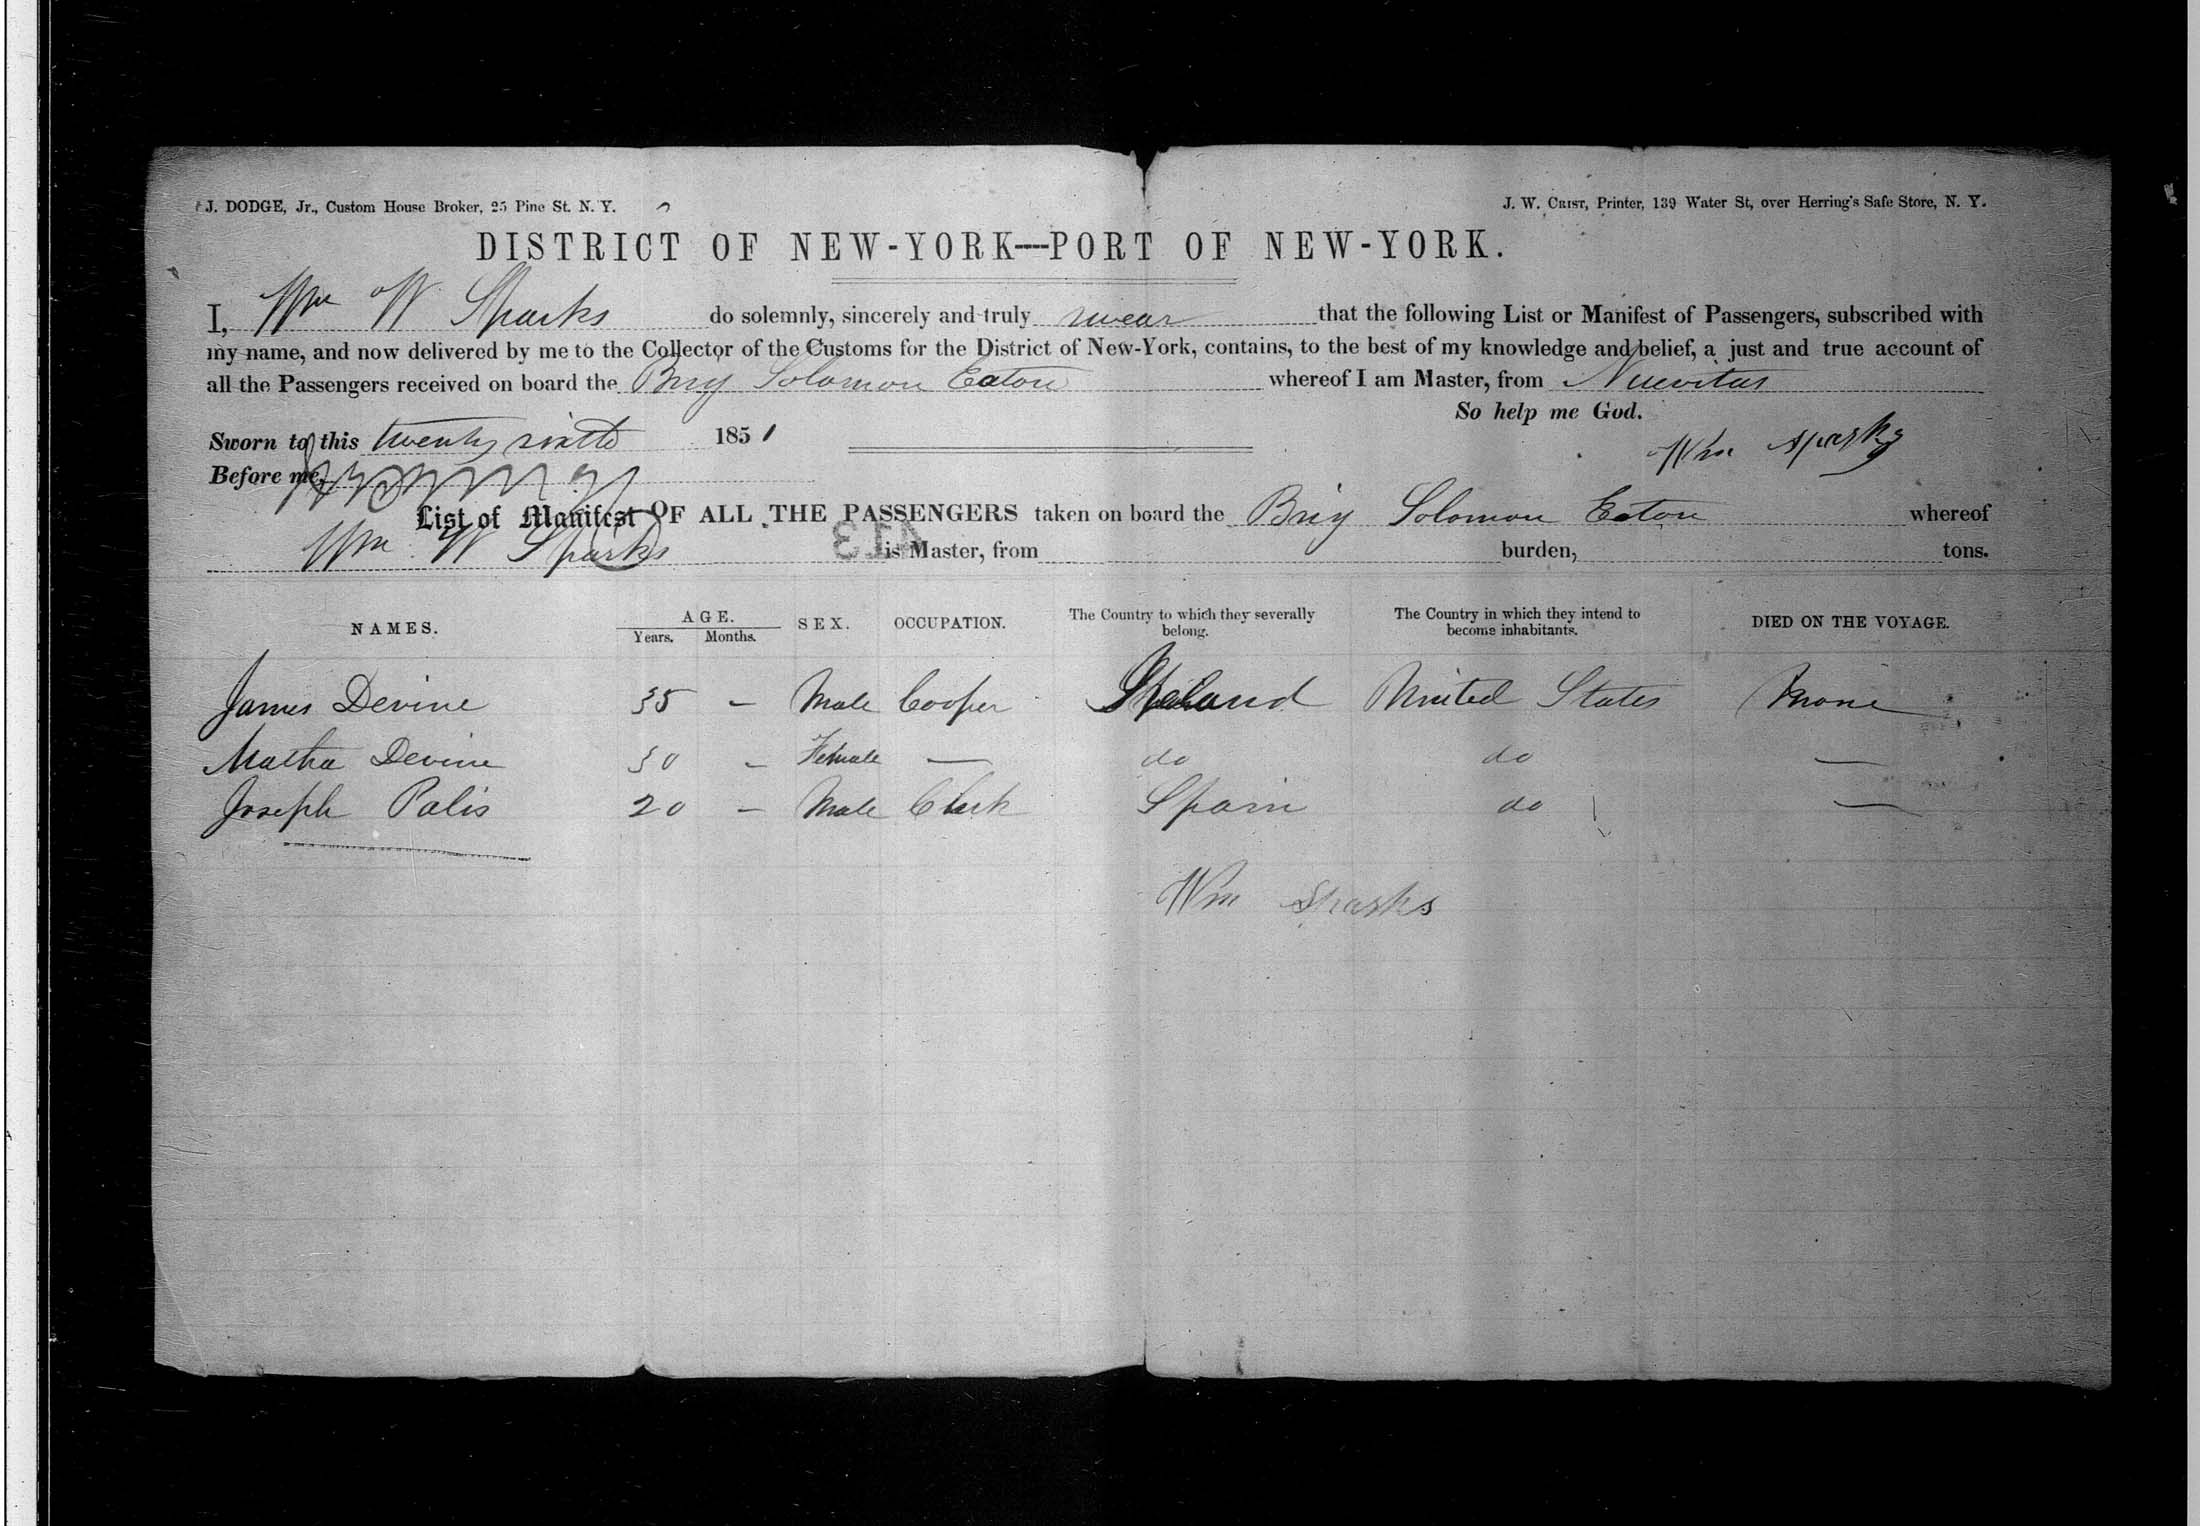 J. DODGE, Jr., Custom House Broker, 25 Pine St. N. Y.
J. W. CRIST, Printer, 139 Water St, over Herring's Safe Store, N. Y.
DISTRICT OF NEW-YORK—PORT OF NEW-YORK.
I, Wm W Sparks do solemnly, sincerely and truly swear that the following List or Manifest of Passengers, subscribed with
my name, and now delivered by me to the Collector of the Customs for the District of New-York, contains, to the best of my knowledge and belief, a just and true account of
all the Passengers received on board the Brig Solomon Eaton whereof I am Master, from Nuevitas
So help me God.
Sworn to this twenty sixth 1851
Wm Sparks
Before me,
List of Manifest OF ALL THE PASSENGERS taken on board the Brig Solomon Eaton whereof
Wm W Sparks is Master, from burden, tons.
413
NAMES. AGE. Years. Months. SEX. OCCUPATION. The Country to which they severally belong. The Country in which they intend to become inhabitants. DIED ON THE VOYAGE.
James Devine 35 – Male Cooper Ireland United States None
Matha Devine 30 – Female — do do —
Joseph Palis 20 – Male Clerk Spain do —
Wm Sparks